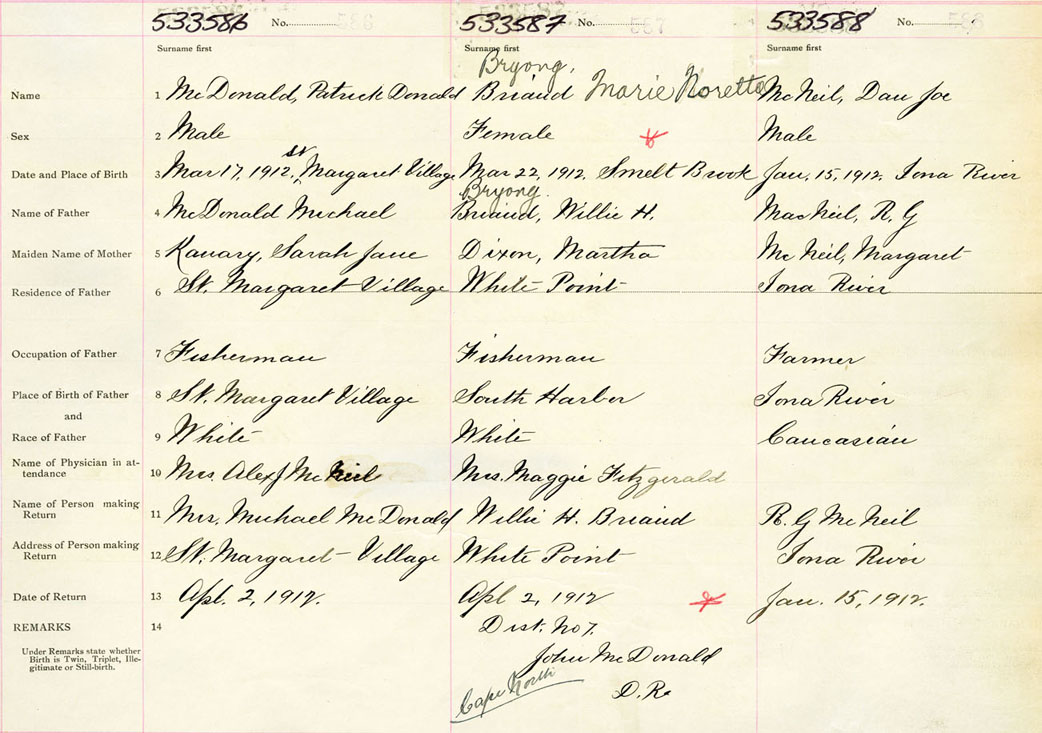 533586 No. 586 533587 No. 587 533588 No. 588
Surname first Surname first Surname first
Bryong.
Name 1 McDonald, Patrick Donald Briaud Marie Noretta McNeil, Dan Joe
Sex 2 Male Female Male
Date and Place of Birth 3 Mar 17, 1912, St. Margaret Village Mar 22, 1912. Smelt Brook Jan. 15, 1912. Iona River
Bryong.
Name of Father 4 McDonald Michael Briaud, Willie H. MacNeil, R. G
Maiden Name of Mother 5 Kanary, Sarah Jane Dixon, Martha McNeil, Margaret
Residence of Father 6 St. Margaret Village White Point Iona River
Occupation of Father 7 Fisherman Fisherman Farmer
Place of Birth of Father 8 St. Margaret Village South Harbor Iona River
and
Race of Father 9 White White Caucasian
Name of Physician in at-
tendance 10 Mrs. Alex J McNeil Mrs. Maggie Fitzgerald
Name of Person making
Return 11 Mrs. Michael McDonald Willie H. Briaud R. G McNeil
Address of Person making
Return 12 St. Margaret Village White Point Iona River
Date of Return 13 Apl. 2, 1912. Apl 2, 1912 Jan. 15, 1912.
REMARKS 14 Dist. No 7.
Under Remarks state whether
Birth is Twin, Triplet, Ille-
gitimate or Still-birth.
John McDonald
Cape North D. R.